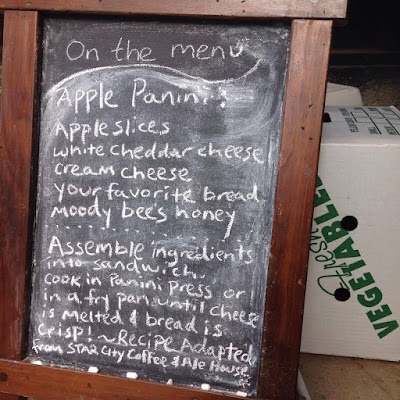 On the menu
Apple Panini:
Apple slices
white cheddar cheese
cream cheese
your favorite bread
moody bees honey
Assemble ingredients
into sandwich.
cook in Panini press or
in a fry pan until cheese
is melted & bread is
crisp! ~ Recipe Adapted
from STAR City Coffee & Ale House
Fresh
VEGETABLES